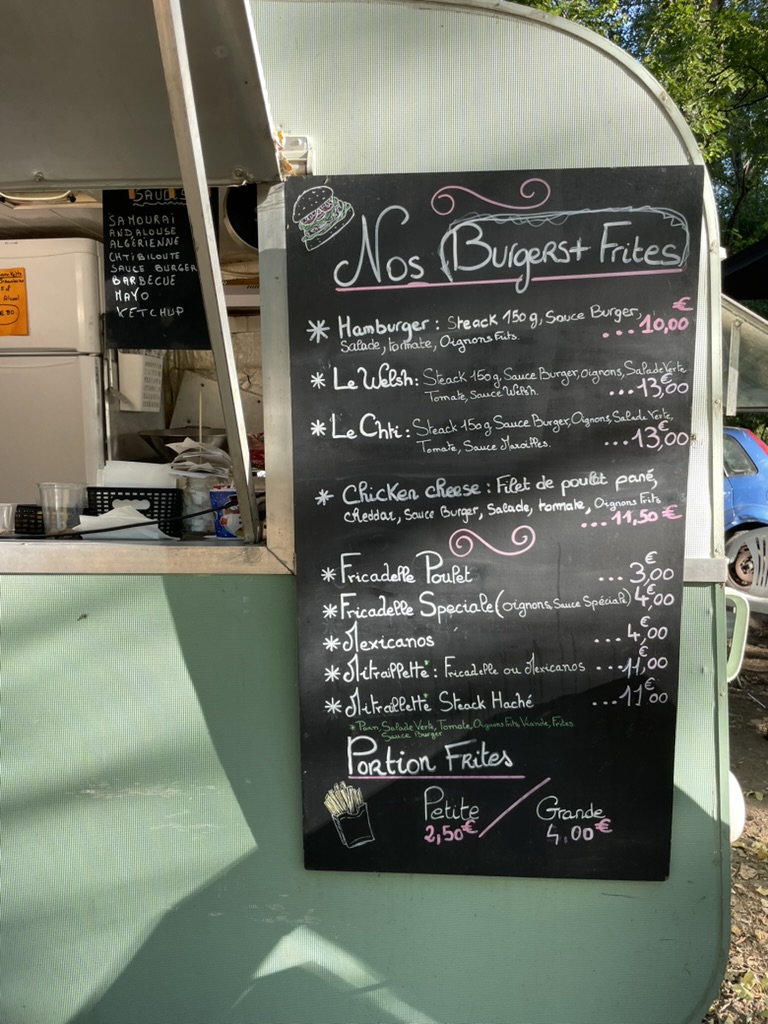 SAUCES
SAMOURAÏ
ANDALOUSE
ALGÉRIENNE
CHTIBILOUTE
SAUCE BURGER
BARBECUE
MAYO
KETCHUP
Nos Burgers + Frites
* Hamburger : Steack 150g, Sauce Burger,
Salade, tomate, Oignons Frits. ...10,00 €
* Le Welsh : Steack 150g, Sauce Burger, oignons, Salade Verte
Tomate, Sauce Welsh. ...13,00 €
* Le Chti : Steack 150g Sauce Burger, Oignons, Salade Verte,
Tomate, Sauce Maroilles. ...13,00 €
* Chicken cheese : Filet de poulet pané,
cheddar, Sauce Burger, Salade, tomate, Oignons Frits
...11,50 €
* Fricadelle Poulet ...3,00 €
* Fricadelle Speciale (oignons, Sauce Spéciale) 4,00 €
* Mexicanos ...4,00 €
* Mitraillette : Fricadelle ou Mexicanos ...11,00 €
* Mitraillette Steack Haché ...11,00 €
* Pain, Salade Verte, Tomate, Oignons Frits, Viande, Frites
Sauce Burger
Portion Frites
Petite / Grande
2,50€ 4,00€